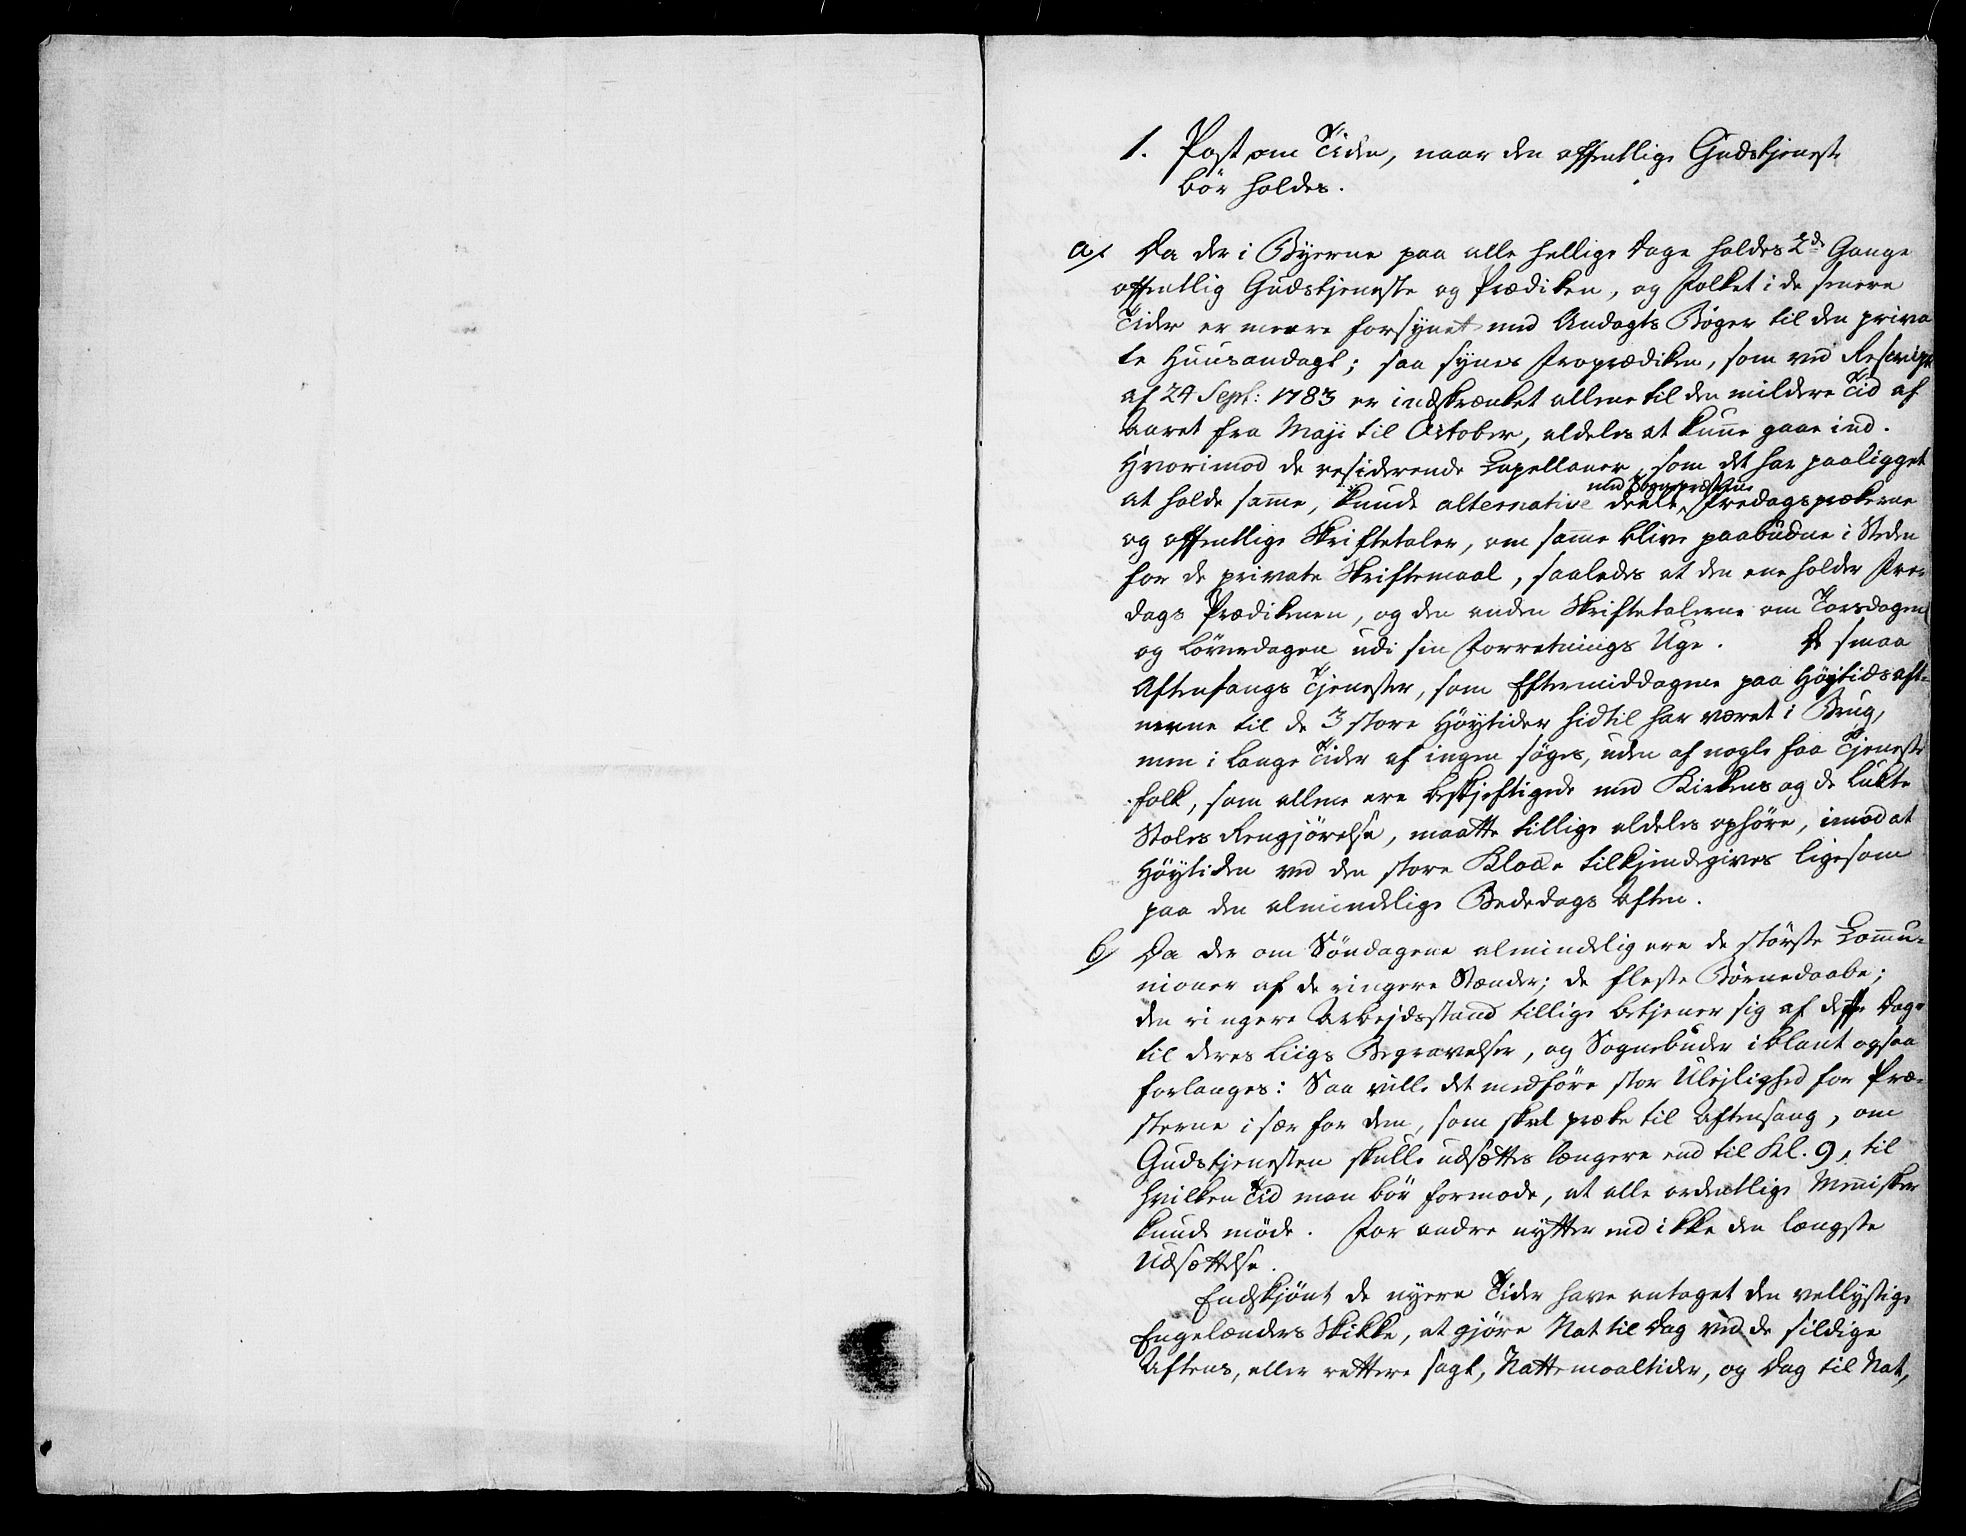 1. Post, om Tiden, naar den offentlige Gudstjeneste
bör holdes.
a/. Da der i Byerne paa alle hellige Dage holdes 2de Gange
offentlig Gudstjeneste og Prædiken, og Folket i de senere
Tider er meere forsynet med Andagts Bøger til den priva
te Huusandagt; saa synes Froprædiken, som ved Rescript
af 24 Sept: 1783 er indskrænket allene til den mildere Tid af
Aaret fra Maji til October, aldeles at kunne gaae ind.
Hvorimod de residerende Capellaner, som det har paaligget
at holde samme, kunde alternative deele med Sognepræsterne Fredagsprækerne
og offentlige Skriftetaler, om samme blive paabudne i Steden
for de private Skriftemaal, saaledes at den ene holder Fre-
dags Prædikenen, og den anden Skriftetalerne om Torsdagen
og Løverdagen udi sin Forretnings Uge. De smaa
Aftensangs Tjenester, som Eftermiddagene paa Höytidsaft-
nerne til de 3 store Höytider hidtil har været i Brug,
men i lange Tider af ingen søges, uden af nogle faa Tjeneste
folk, som allene ere beskjeftigede med Kirkens og de lukte
Stoles Rengjørelse, maatte tillige aldeles ophöre, imod at
Höytiden ved den store Klokke tilkjendegives ligesom
paa den almindelige Bededags Aften.
b/ Da der om Söndagene almindelig ere de störste Commu-
nioner af de ringere Stænder; de fleste Börnedaabe;
den ringere Arbejdsstand tillige betjener sig af disse Dage
til deres Liigs Begravelser, og Sognebuder iblant ogsaa
forlanges: Saa ville det medføre stor Ulejlighed for Præ-
sterne i sær for dem, som skal præke til Aftensang, om
Gudstjenesten skulle udsættes længere end til Kl. 9, til
hvilken Tid man bör formode, at alle ordentlige Mennisker
kunde möde. For andre nytter end ikke den længste
Udsættelse.
Endskjönt de nyere Tider have antaget den vellystige
Engelænders Skikke, at gjöre Nat til Dag ved de sildige
Aftens, eller rettere sagt, Nattemaaltider, og Dag til Nat,